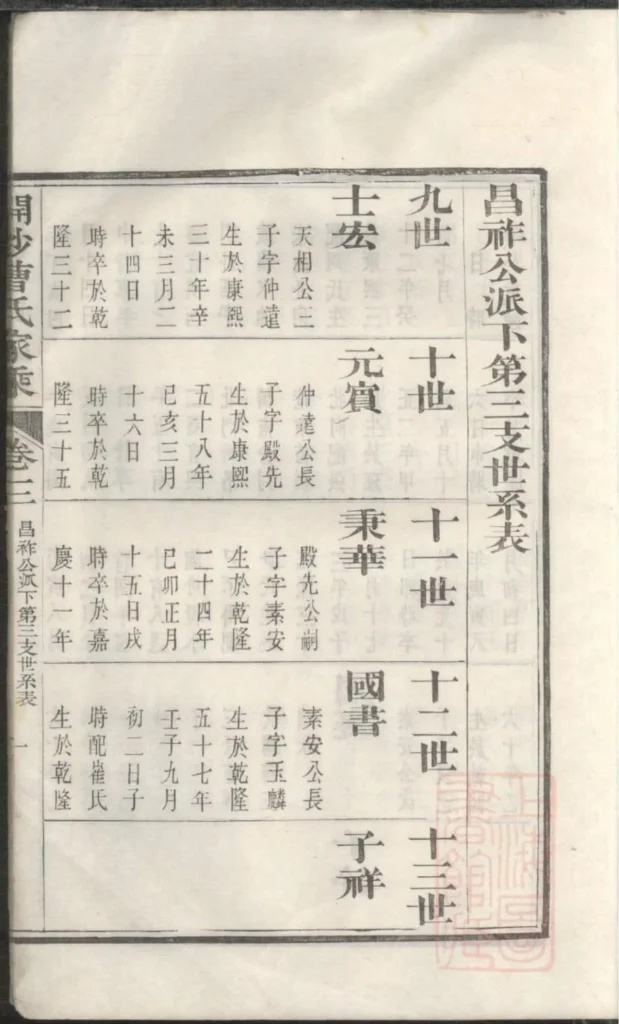 昌祚公派下第三支世系表
九世
士宏
天相公三
子字仲達
生於康熙
三十年辛
未三月二
十四日
時卒於乾
隆三十二
十世
元賓
仲達公長
子字殿先
生於康熙
五十八年
己亥三月
十六日
時卒於乾
隆三十五
十一世
秉華
殿先公嗣
子字素安
生於乾隆
二十四年
己卯正月
十五日戌
時卒於嘉
慶十一年
十二世
國書
素安公長
子字玉麟
生於乾隆
五十七年
壬子九月
初二日子
時配崔氏
生於乾隆
十三世
子祥
開沙曹氏家乘
卷三
昌祚公派下第三支世系表
一